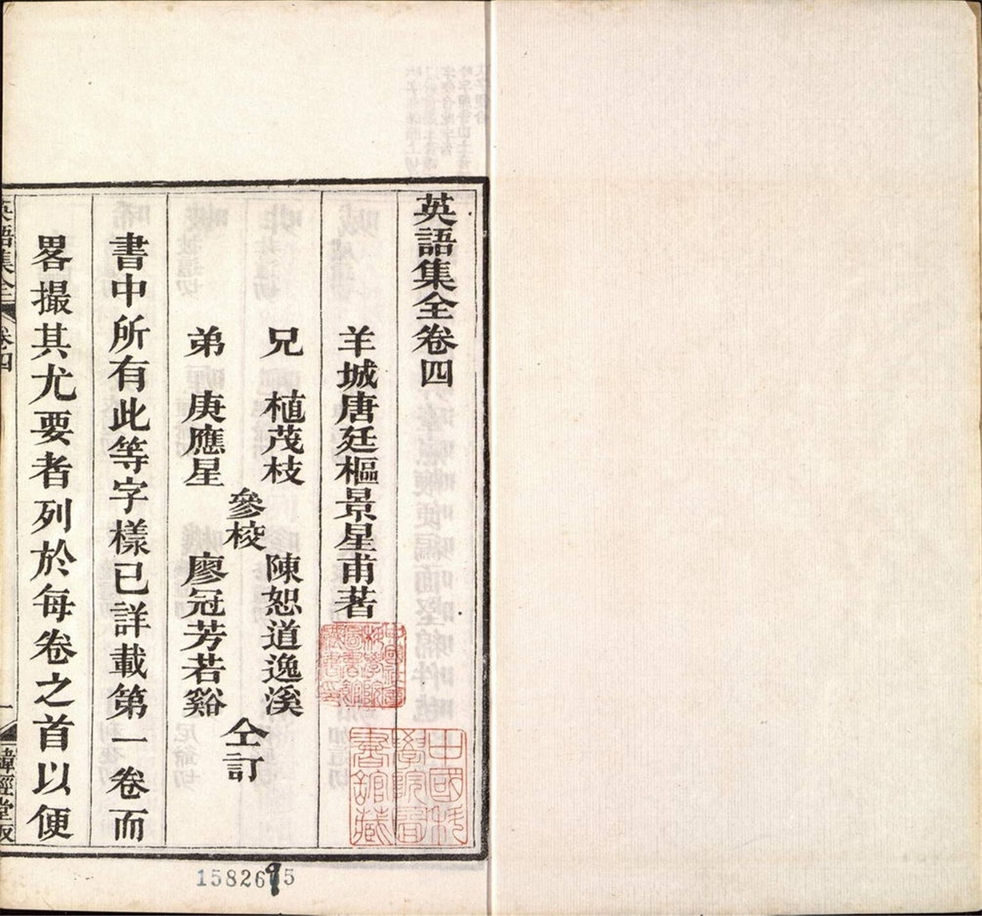 英語集全卷四
羊城唐廷樞景星甫著
兄 植茂枝
弟 庚應星
參校
陳恕道逸溪
廖冠芳若谿
仝訂
書中所有此等字樣已詳載第一卷而
畧撮其尤要者列於每卷之首以便
英語集全 卷四 一 緯經堂板
中國科學院圖書館藏
15826
5